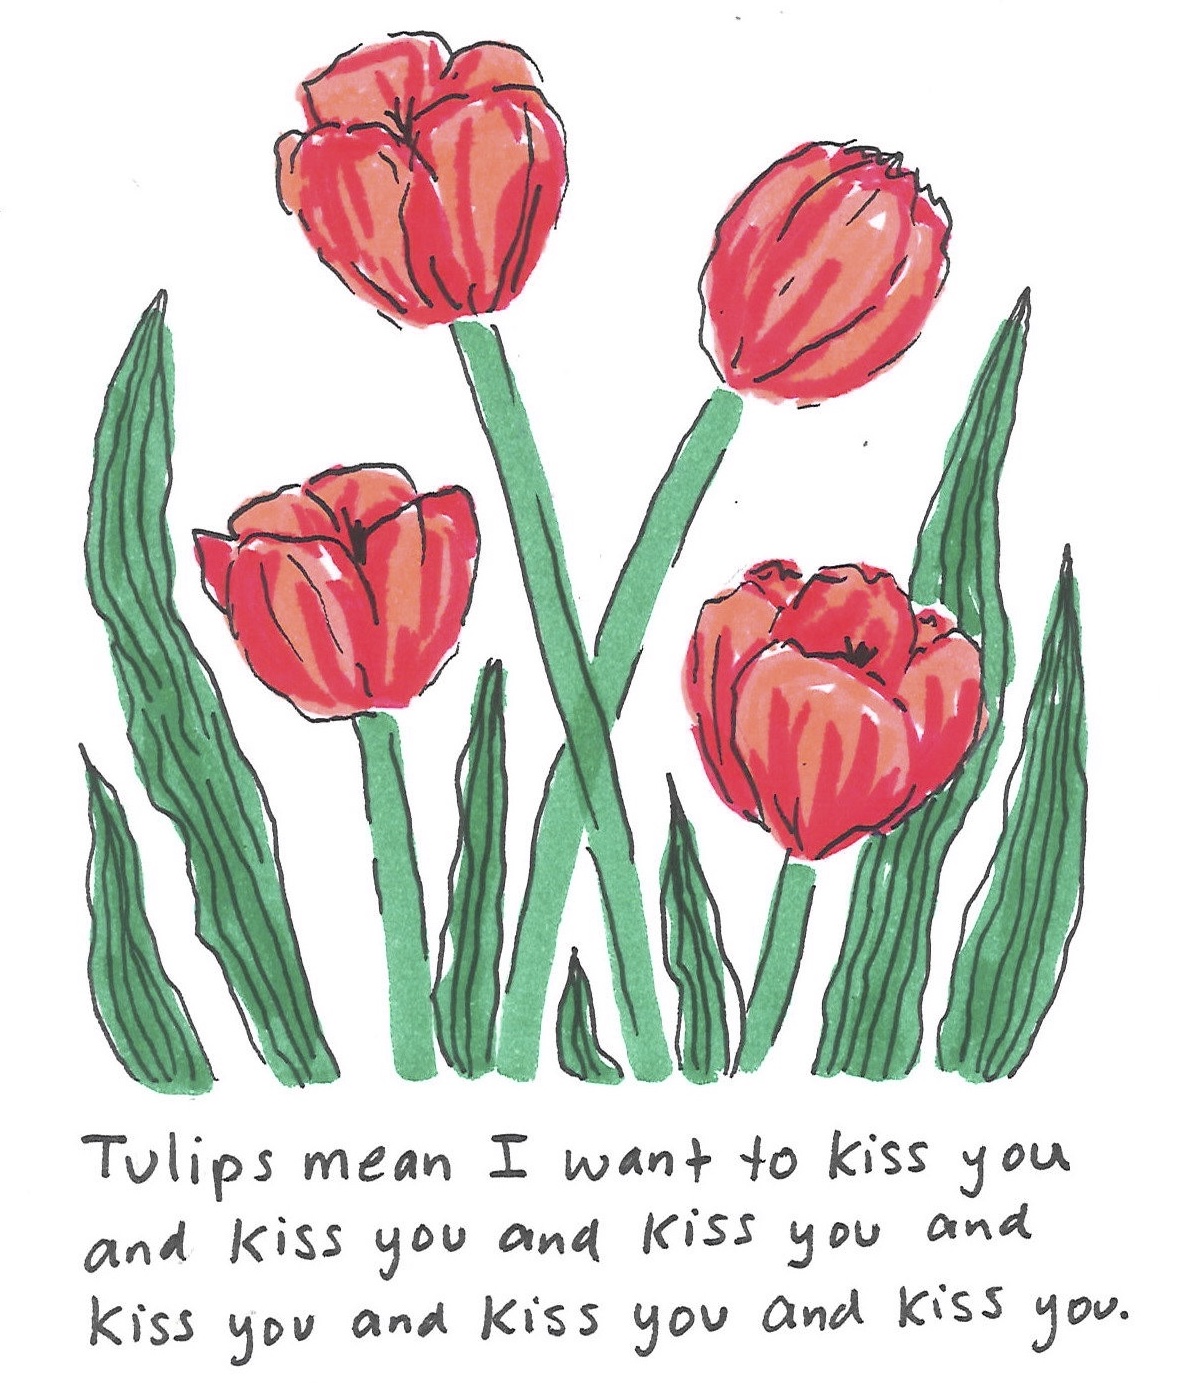 Tulips mean I want to kiss you
and kiss you and kiss you and
kiss you and kiss you and kiss you.